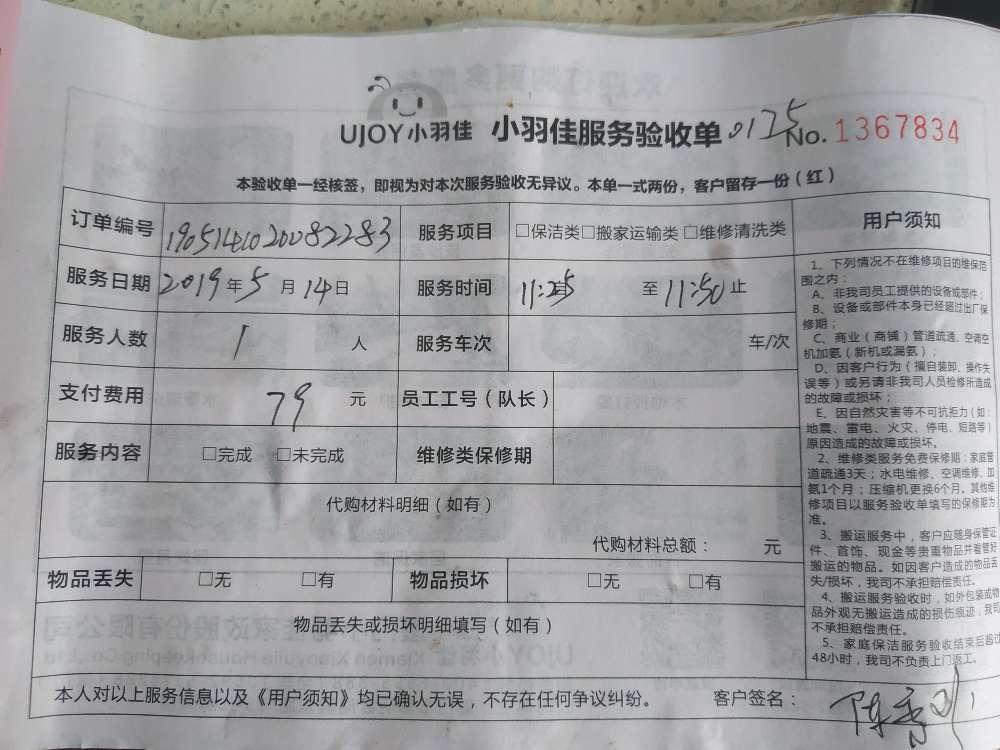 UJOY小羽佳 小羽佳服务验收单 0175 No. 1367834
本验收单一经核签，即视为对本次服务验收无异议。本单一式两份，客户留存一份（红）
订单编号 服务项目 □保洁类□搬家运输类 □维修清洗类
服务日期 2019年5月14日 服务时间 11:25 至 11:50止
服务人数 1 人 服务车次 车/次
支付费用 79 元 员工工号（队长）
服务内容 □完成 □未完成 维修类保修期
代购材料明细（如有）
代购材料总额： 元
物品丢失 □无 □有 物品损坏 □无 □有
物品丢失或损坏明细填写（如有）
本人对以上服务信息以及《用户须知》均已确认无误，不存在任何争议纠纷。 客户签名：
用户须知
1、下列情况不在维修项目的维保范
围之内：
A、非我司员工提供的设备或部件；
B、设备或部件本身已经超过出厂保
修期；
C、商业（商铺）管道疏通、空调空
机加氨（新机或漏氨）；
D、因客户行为（擅自装卸、操作失
误等）或另请非我司人员检修所造成
的故障或损坏；
E、因自然灾害等不可抗拒力（如：
地震、雷电、火灾、停电、短路等）
原因造成的故障或损坏。
2、维修类服务免费保修期：家庭管
道疏通3天；水电维修、空调维修、加
氨1个月；压缩机更换6个月。其他维
修项目以服务验收单填写的保修期为
准。
3、搬运服务中，客户应随身保管证
件、首饰、现金等贵重物品并看管好
搬运的物品。如因客户造成的物品丢
失/损坏，我司不承担赔偿责任。
4、搬运服务验收时，如外包装或物
品外观无搬运造成的损伤痕迹，我司
不承担赔偿责任。
5、家庭保洁服务验收结束后超过
48小时，我司不负责上门返工。